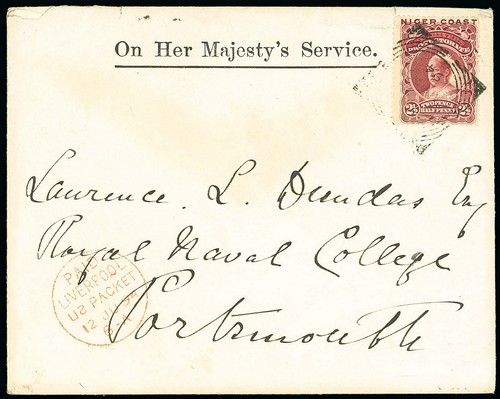 NIGER COAST
On Her Majesty's Service.
TWO PENCE
HALF PENNY
2½ 2½
Lawrence. L. Dundas Esq
Royal Naval College
Portsmouth
PAID
LIVERPOOL
US PACKET
12 94